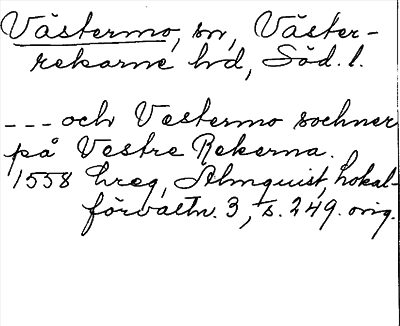 Västermo, sn, Väster-
rekarne hd, Söd. l.
--- och Vestermo sochner
på Vestre Rekerna.
1558 hreg, Almquist, Lokal-
förvaltn. 3, s. 249. orig.